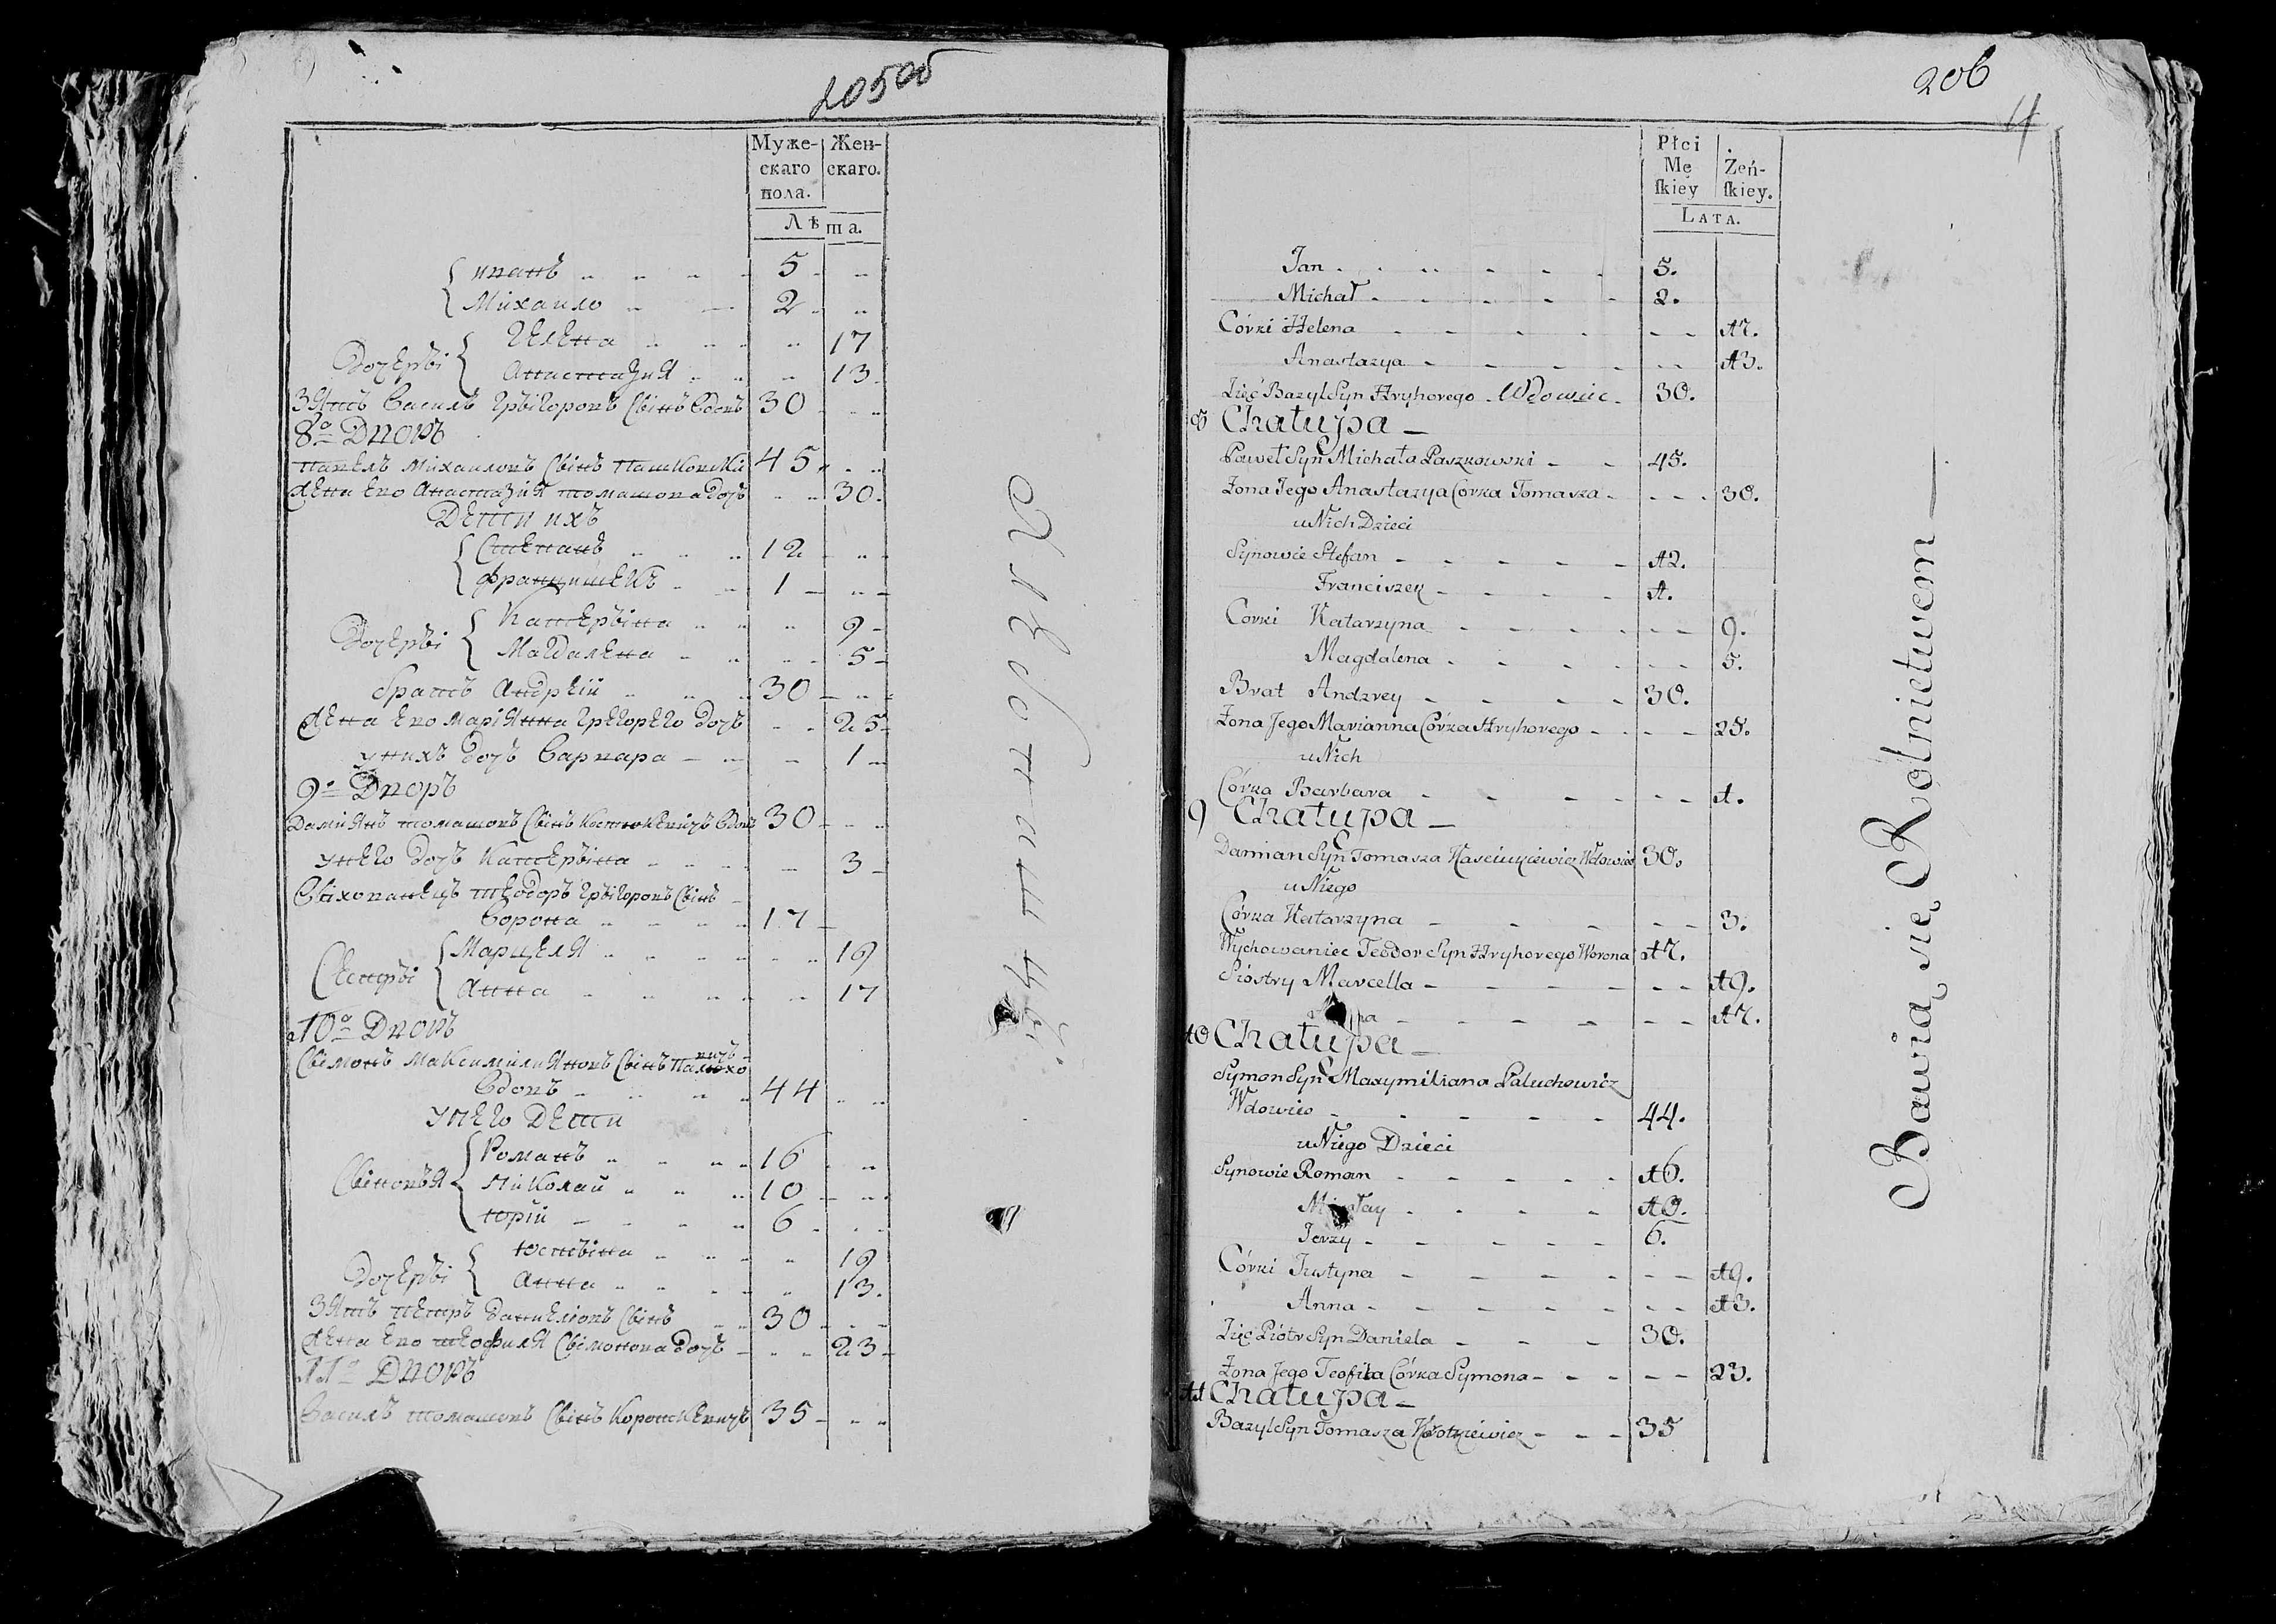 205 об
Муже-
скаго
пола.
Жен-
скаго.
Лѣта.
Иванъ 5
Михаило 2
Дочерѣ Гелена 17
Анастазия 13
Зять Василь Грыгоровъ Сынъ Вдовъ 30
8о Дворъ
Павелъ Михаиловъ Сынъ Пашковски 45
Жена Его Анастазия Томашова Дочь 30
Дети ихъ
Степанъ 12
Францишекъ 1
Дочеры Катерына 9
Магдалена 5
Братъ Андрей 30
Жена Его Марианна Грегорего Дочь 25
У нихъ Дочь Варвара 1
9о Дворъ
Дамиянъ Томашовъ Сынъ Костюкевичъ Вдовъ 30
У него Дочь Катерына 3
Выхованецъ Теодоръ Грыгоровъ Сынъ
Ворона 17
Сестры Марцеля 19
Анна 17
10о Дворъ
Сымонъ Максимилияновъ Сынъ Палюховичъ
Вдовъ 44
У него Дети
Сыновья Романъ 16
Николай 10
Юрій 6
Дочеры Юстына 19
Анна 13
Зять Петръ Даниеловъ Сынъ 30
Жена Его Теофиля Сымонова Дочь 23
11о Дворъ
Василь Томашовъ Сынъ Короткевичъ 35
206
Płci
Mę
ſkiey
Żeń-
ſkiey.
Lata.
Jan 5.
Michał 2.
Córki Helena 17.
Anastazya 13.
Zięć Bazyl Syn Hryhorego Wdowiec 30.
8 Chałupa
Paweł Syn Michała Paszkowski 45.
Żona Jego Anastazya Corka Tomasza 30.
u Nich Dzieci
Synowie Stefan 12.
Franciszek 1.
Corki Katarzyna 9.
Magdalena 5.
Brat Andrzey 30.
Żona Jego Marianna Córka Hryhorego 25.
u Nich
Córka Barbara 1.
9 Chałupa
Damian Syn Tomasza Kasciukiewicz Wdowiec 30.
u Niego
Córka Katarzyna 3.
Wychowaniec Teodor Syn Hryhorego Worona 17.
Sióstry Marcella 19.
17.
10 Chałupa
Symon Syn Maxymiliana Paluchowicz
Wdowiec 44.
u Niego Dzieci
Synowie Roman 16.
Mikołay 10.
Jerzy 6.
Córki Justyna 19.
Anna 13.
Zięć Piótr Syn Daniela 30.
Żona Jego Teofila Córka Symona 23.
11 Chałupa
Bazyl Syn Tomasza Korotkiewicz 35
Bawią się Rólnictwem